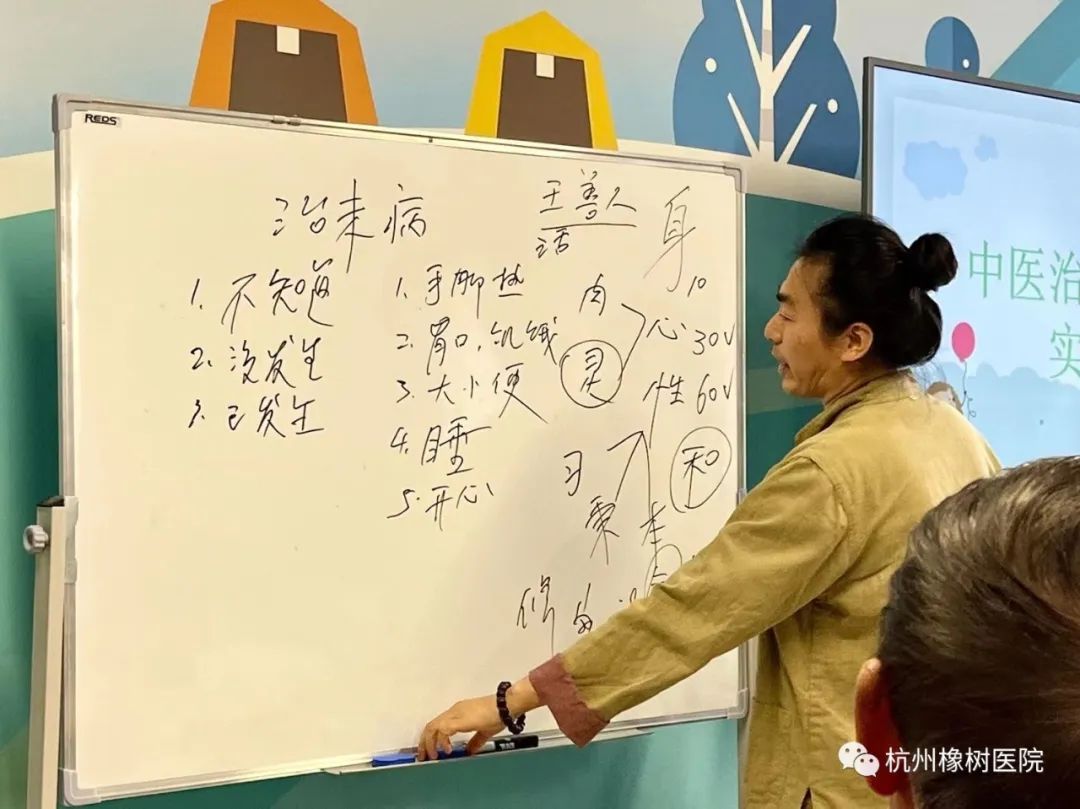 REDS
治未病
1. 不知道
2. 没发生
3. 已发生
1. 手脚热
2. 胃口、饥饿
3. 大小便
4. 睡
5. 开心
王善人
话
身 10
肉
心 30%
灵
性 60%
习
禀
本
和
修
中医治
实
杭州橡树医院